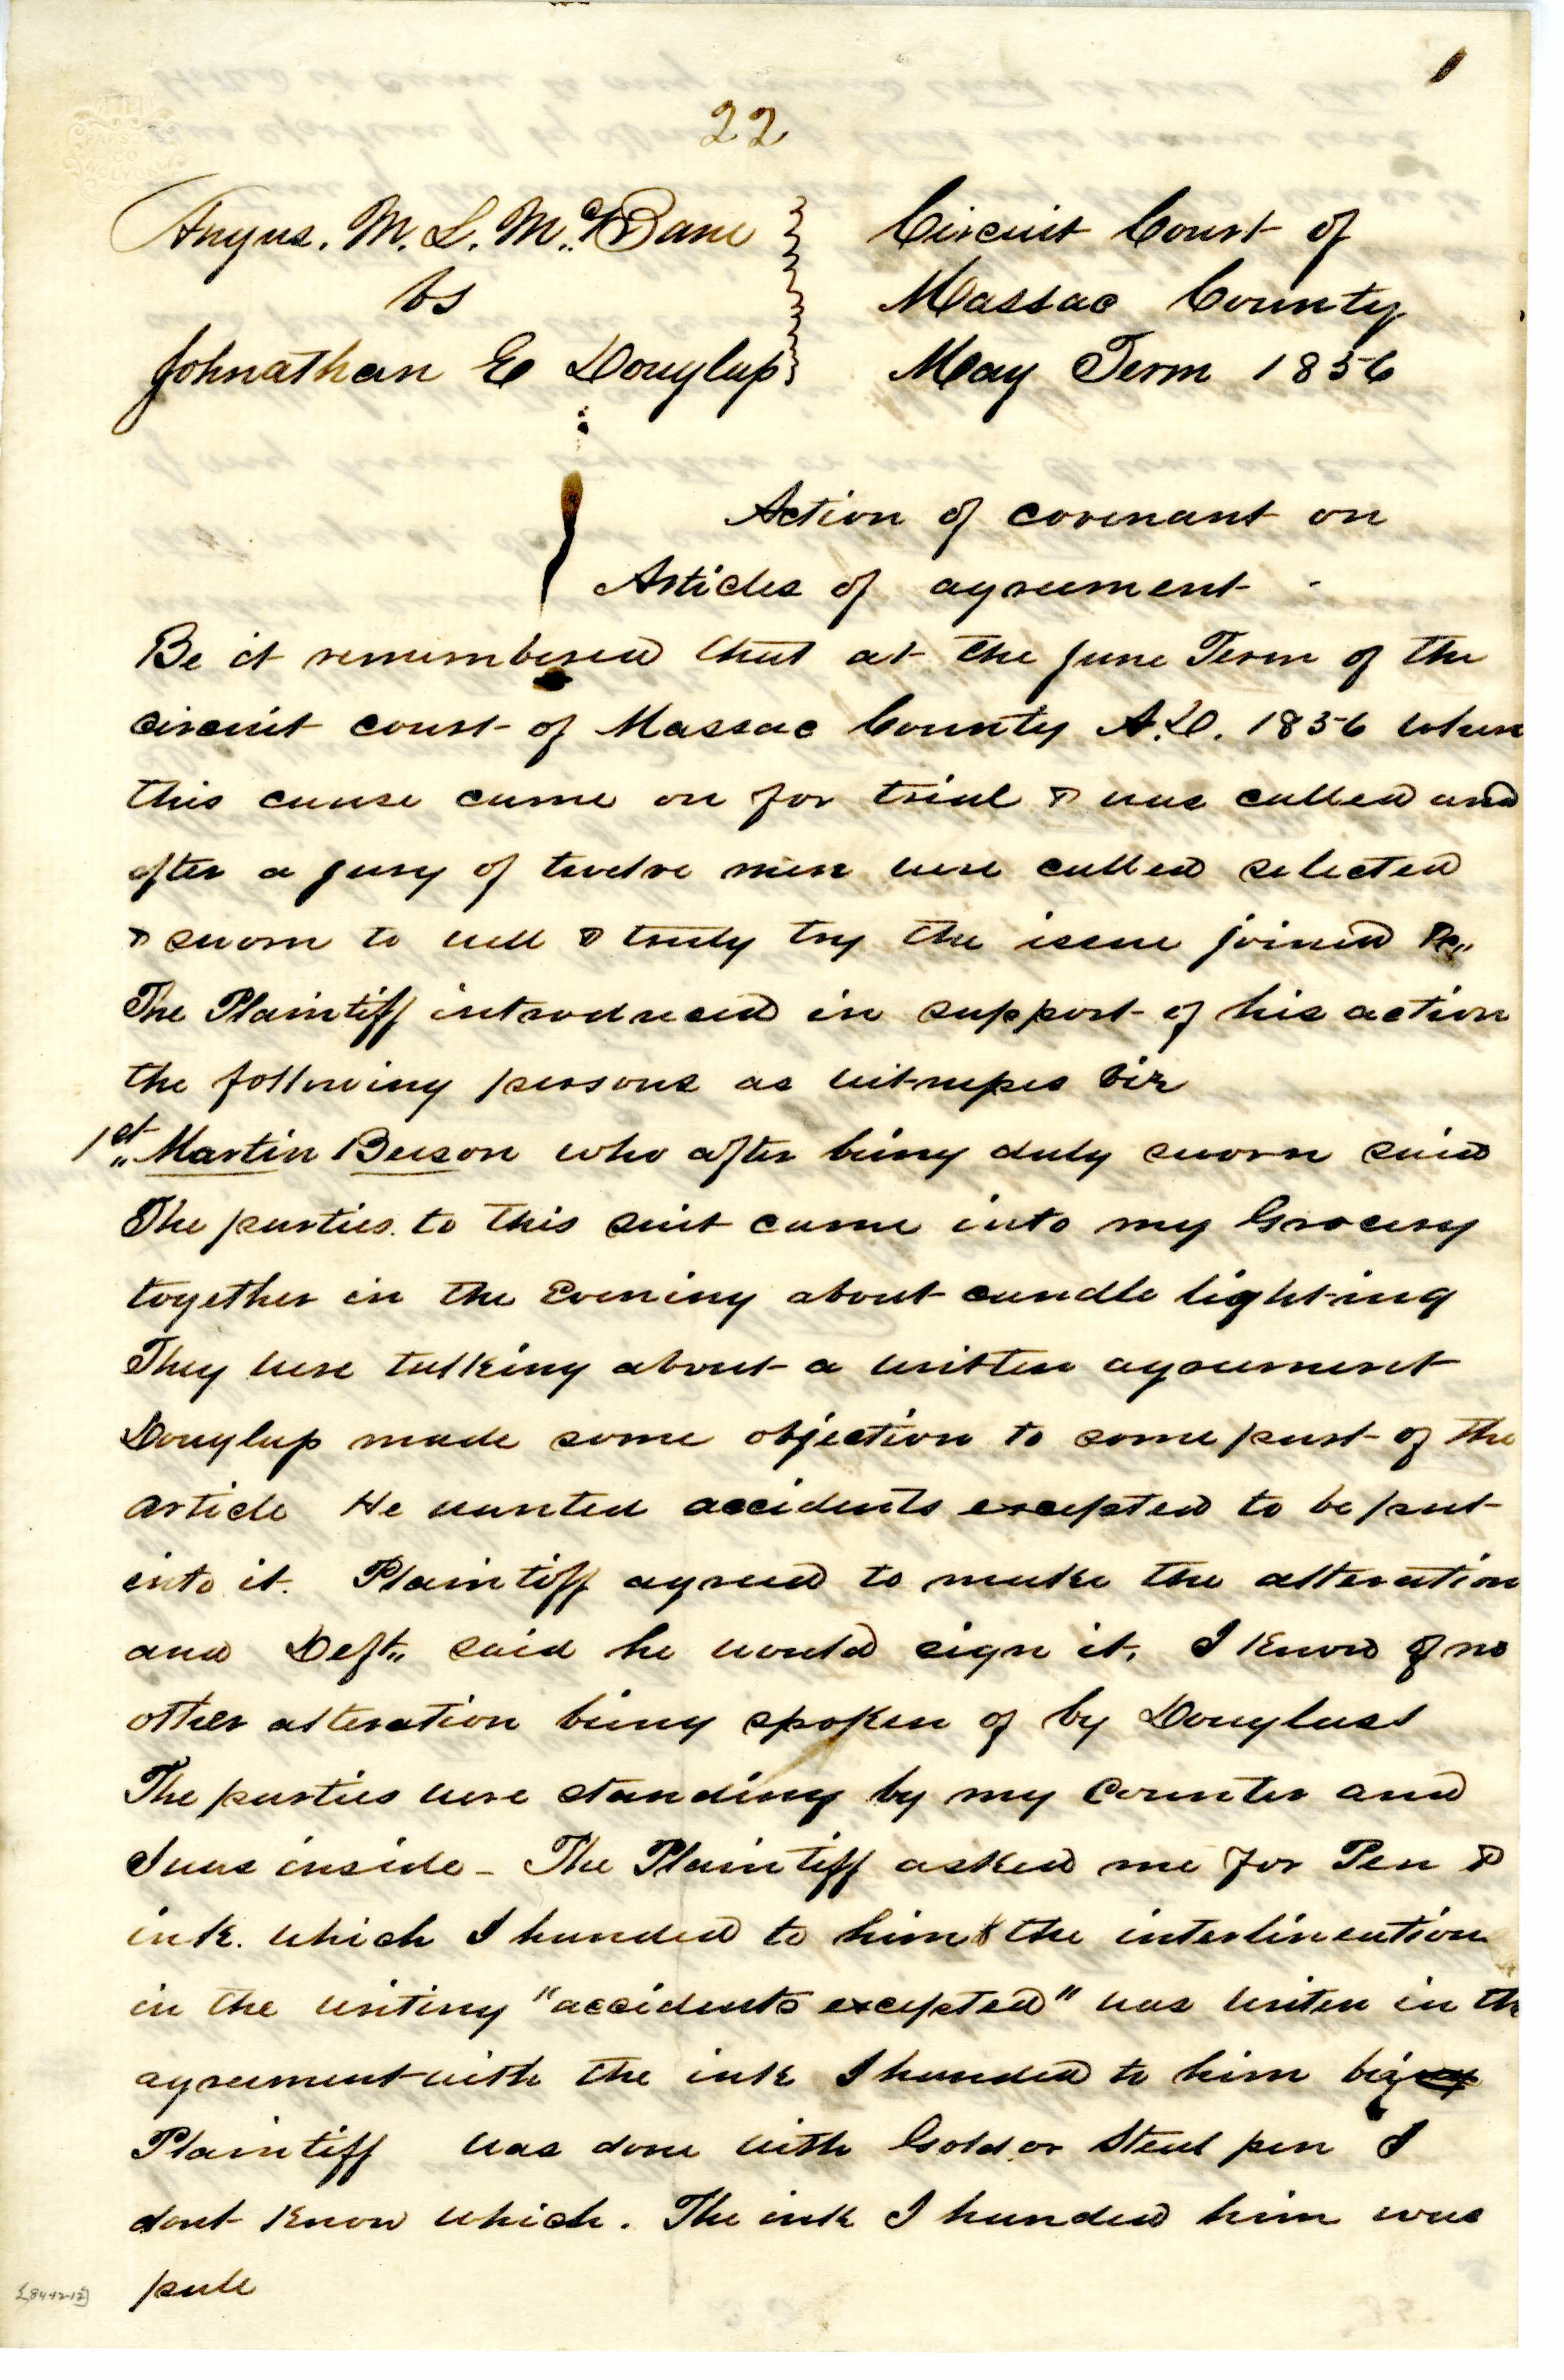 22
Angus. M. L. McBane
vs
Johnathan E Douglass
Circuit Court of
Massac County
May Term 1856
Action of covenant on
Articles of agreement -
Be it remembered that at the June Term of the
circuit court of Massac County A.D. 1856 when
this cause came on for trial & was called and
after a jury of twelve men were called selected
& sworn to well & truly try the issue joined &c,,
The Plaintiff introduced in support of his action
the following persons as witnesses viz
1st,, Martin Beeson who after being duly sworn said
The parties to this suit came into my Grocery
together in the Evening about candle lighting
They were talking about a written agreement
Douglass made some objection to some part of the
article He wanted accidents excepted to be put
into it. Plaintiff agreed to make the alteration
and Deft,, said he would sign it, I know of no
other alteration being spoken of by Douglass
The parties were standing by my counter and
I was inside - The Plaintiff asked me for Pen &
ink. which I handed to him & the interlineation
in the writing "accidents excepted" was writen in the
agreement with the ink I handed to him by
Plaintiff was done with Gold or Steel pen I
dont know which. The ink I handed him was
pale